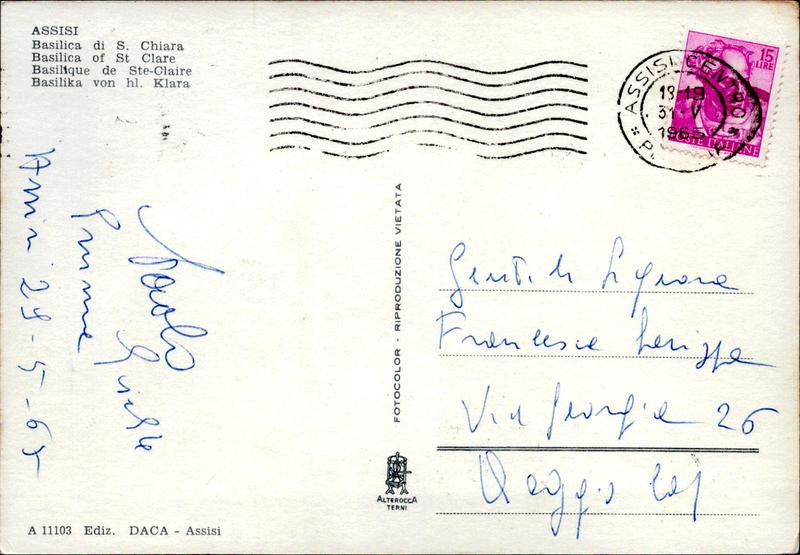 ASSISI
Basilica di S. Chiara
Basilica of St Clare
Basilique de Ste-Claire
Basilika von hl. Klara
15
LIRE
POSTE ITALIANE
ASSISI CENTRO
18-19
31-V
1965
Assisi 29-5-65
Paolo
FOTOCOLOR - RIPRODUZIONE VIETATA
Gent.le Signora
Francesca
Via Georgia 26
Reggio Cal
ALTEROCCA
TERNI
A 11103 Ediz. DACA - Assisi